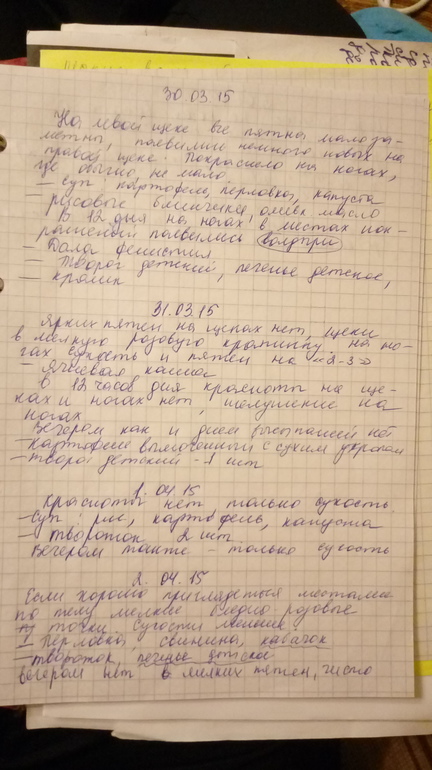 30.03.15
На левой щеке все пятна малоза-
метны, появились немного новых на
правой щеке. Покраснело на ногах,
где обычно, не мало
— суп картофель, перловка, капуста
рисовые масло
В 12 дня на ногах в местах пок-
раснений появились волдыри
— Дала фенистил
— Творог детский, печенье детское,
— кролик
31.03.15
Ярких пятен на щеках нет, щеки
в мелкую розовую крапинку, на но-
гах сухость и пятен на «2-3»
— ячневая каша
в 13 часов дня красноты на ще-
ках и ногах нет, шелушение на
ногах
Вечером как и днем высыпаний нет
— картофель вымоченный с сухим укропом
— творог детский - 1 шт
1.04.15
Красноты нет только сухость
— суп: рис, картофель, капуста
— творожок 2 шт.
Вечером тоже - только сухость
2.04.15
Если хорошо приглядеться местами
по телу мелкие бледно-розовые
точки. Сухости меньше
— Перловка, свинина, кабачок
— творожок, печенье детское
вечером нет мелких пятен, чисто